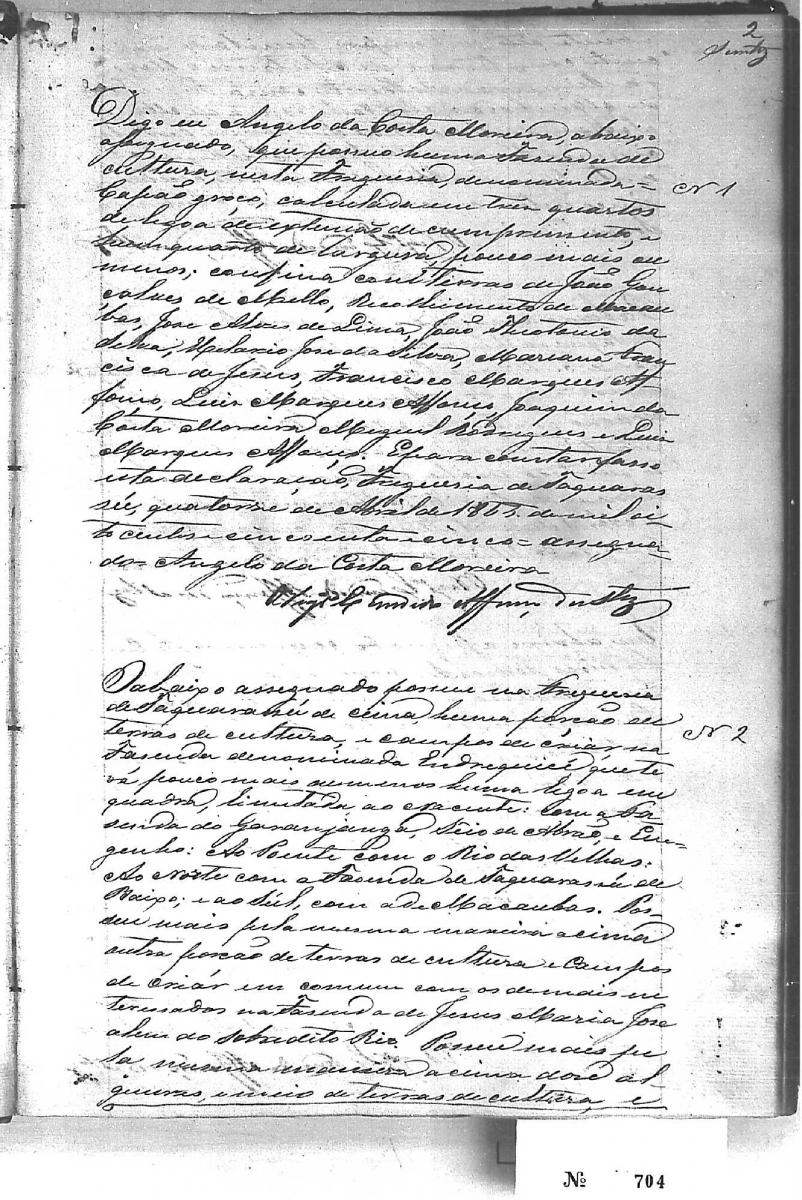 2
Digo eu Angelo da Costa Moreira, abaixo
assignado, que possuo huma Fasenda de
cultura, nesta Freguesia, denominada =
Capão groço, calculada em tres quartos
de legoa de extenção de cumprimento, e
hum quarto de largura, pouco mais ou
menos; confina com terras de João Gon
calves de Mello, Recolhimento de Macau
bas, Jose Alves de Lima, João Theotonio da
Silva, Helario Jose da Silva, Mariana Fran
cisca de Jesus, Francisco Marques Af
fonço, Luis Marques Affonço, Joaquim da
Costa Moreira Miguel Rodrigues e Luis
Marques Affonço. E para constar passo
esta declaração, Freguesia de Taquaras
sú, quatorze de Abril de 1855. de mil oi
to centos e cincoenta e cinco = assigna
do = Angelo da Costa Moreira
Candido Affonço
N 1
O abaixo assignado possue na Freguesia
de Taquarassú de cima, huma porção de
terras de cultura, e campos de criár na
Fasenda denominada Endrequicé, que te
rá, pouco mais ou menos huma legoa em
quadra, limitada ao nacente: com a Fa
senda do Garanjanga, Sitio da Abrão, e En
genho: Ao Poente com o Rio das Velhas:
Ao Norte com a Fazenda de Taquarassú de
Baixo; e ao Sul, com a de Macaubas. Pos
sue mais pela mesma maneira acima
outra porção de terras de cultura e campos
de criár em comum com os de mais in
teressados na Fasenda de Jesus Maria Jose
alem do sobredito Rio. Possue mais pe
la mesma maneira acima dose al
queires, e meio de terras de cultura, e
N 2
Nº 704